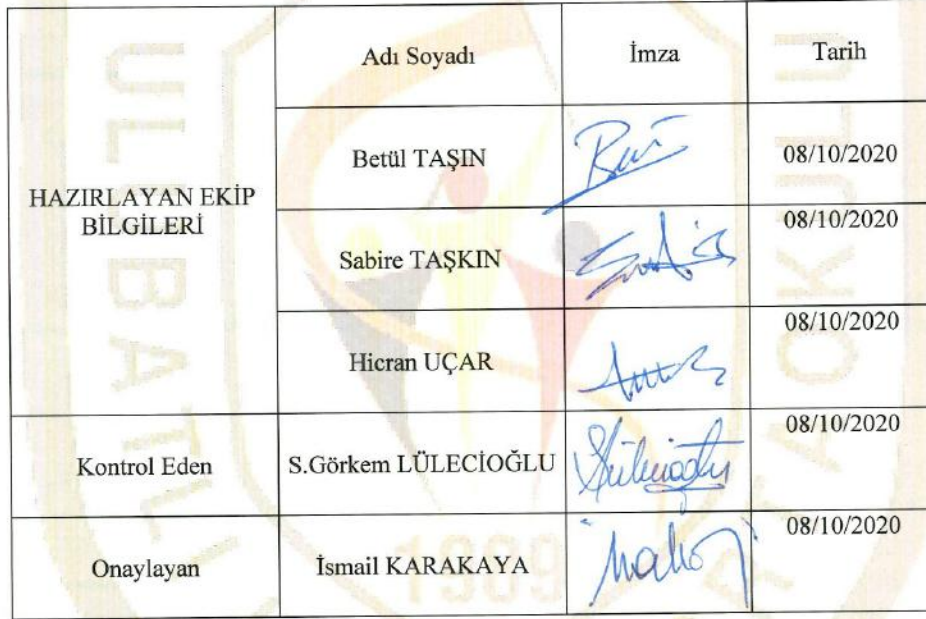 Adı Soyadı İmza Tarih
HAZIRLAYAN EKİP
BİLGİLERİ
Betül TAŞIN 08/10/2020
Sabire TAŞKIN 08/10/2020
Hicran UÇAR 08/10/2020
Kontrol Eden S.Görkem LÜLECİOĞLU 08/10/2020
Onaylayan İsmail KARAKAYA 08/10/2020
ULUBATLI
1989